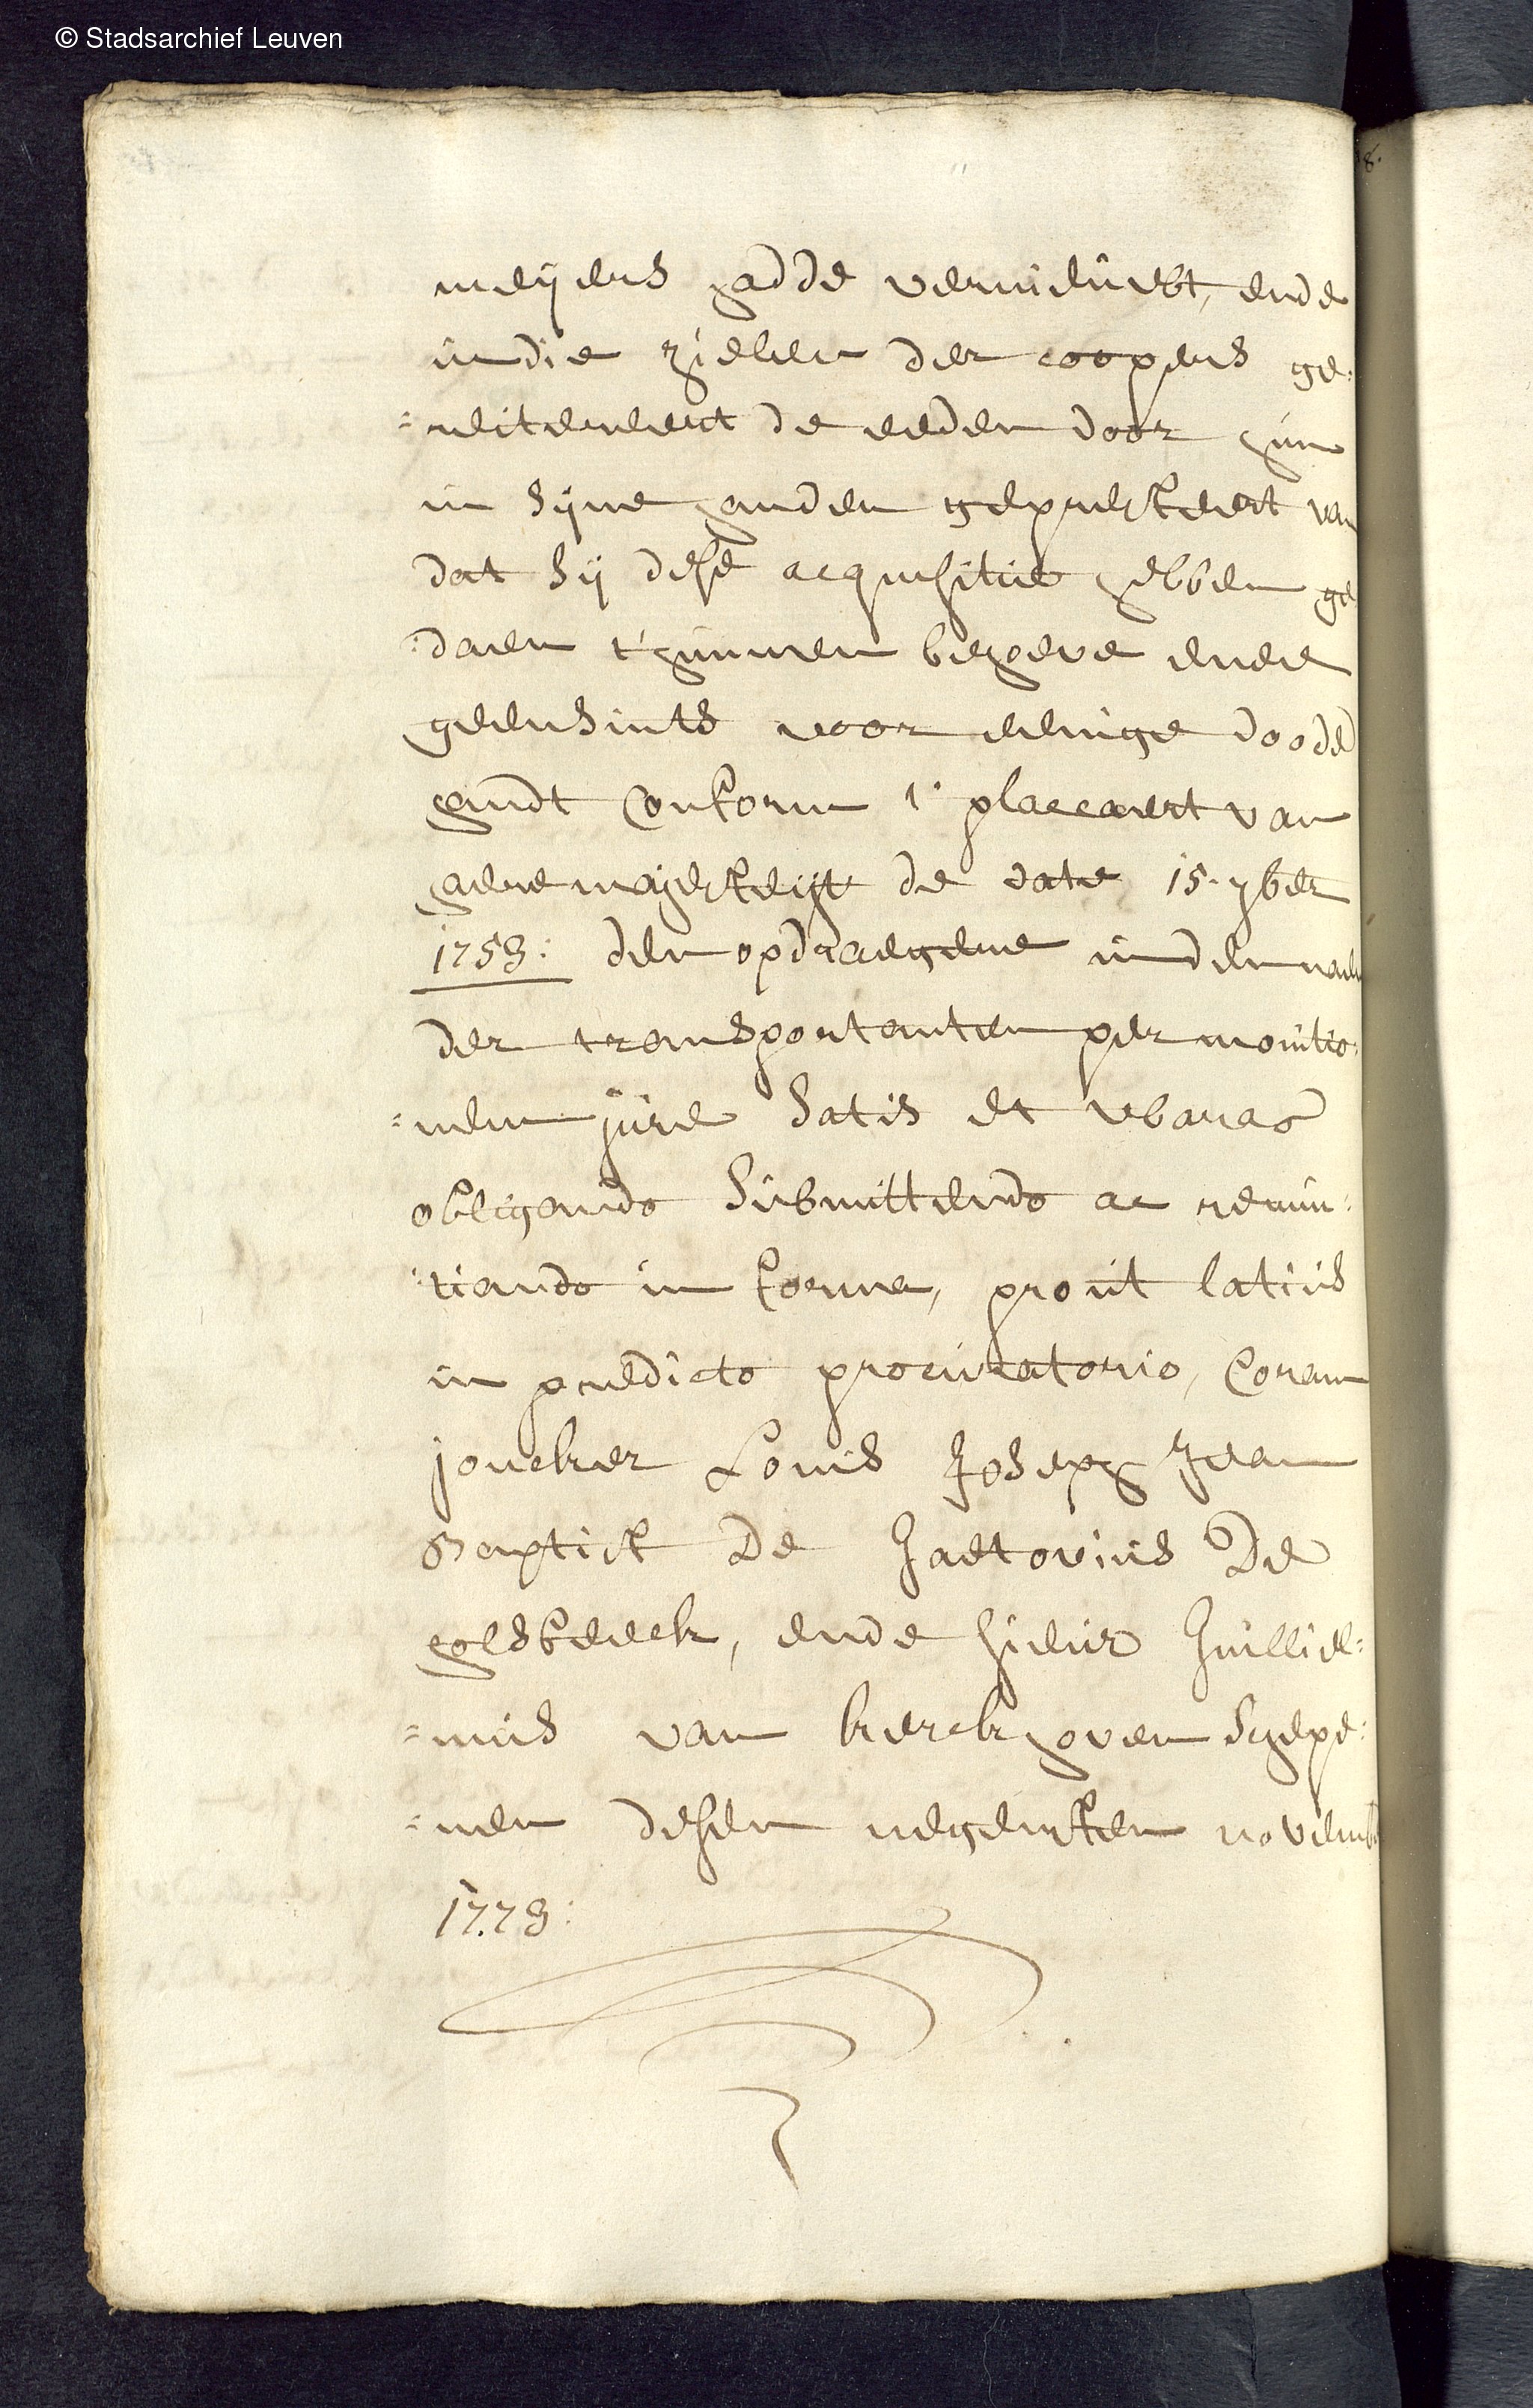 © Stadsarchief Leuven
meijers hadde vernieuwt, ende
in die zielen der coopers ge:
=reitereert de eeden door hun
in sijne handen gepresteert van
dat sij dese acquisitie hebben ge
:daen t'hunnen behoeve ende
geensints voor eenige doode
handt conform 't placcaert van
haere majesteijt de date 15. 7ber
1753: den opdraegene in den naem
der transportanten per monitio:
=nem jure satis et waras
obligando submittendo ac renun:
:tiando in forma, prout latius
in predicto procuratorio, Coram
joncker Louis Joseph Jean
Baptist De Hertovius De
holsbeeck, ende sieur Guilliel=
=mus van kerckhoven schepe:
=nen desen negensten novemb
1773: